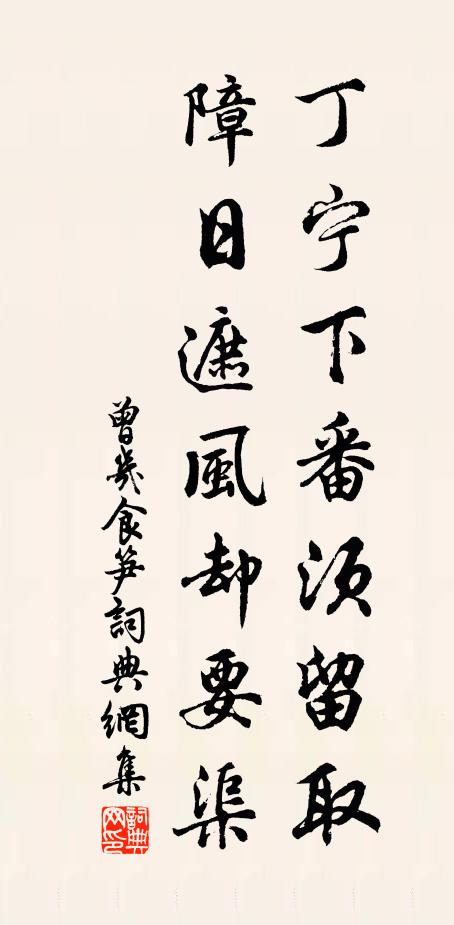 丁宁下番须留取
障日遮風却要渠
曾幾食笋詞典網集
詞典網印